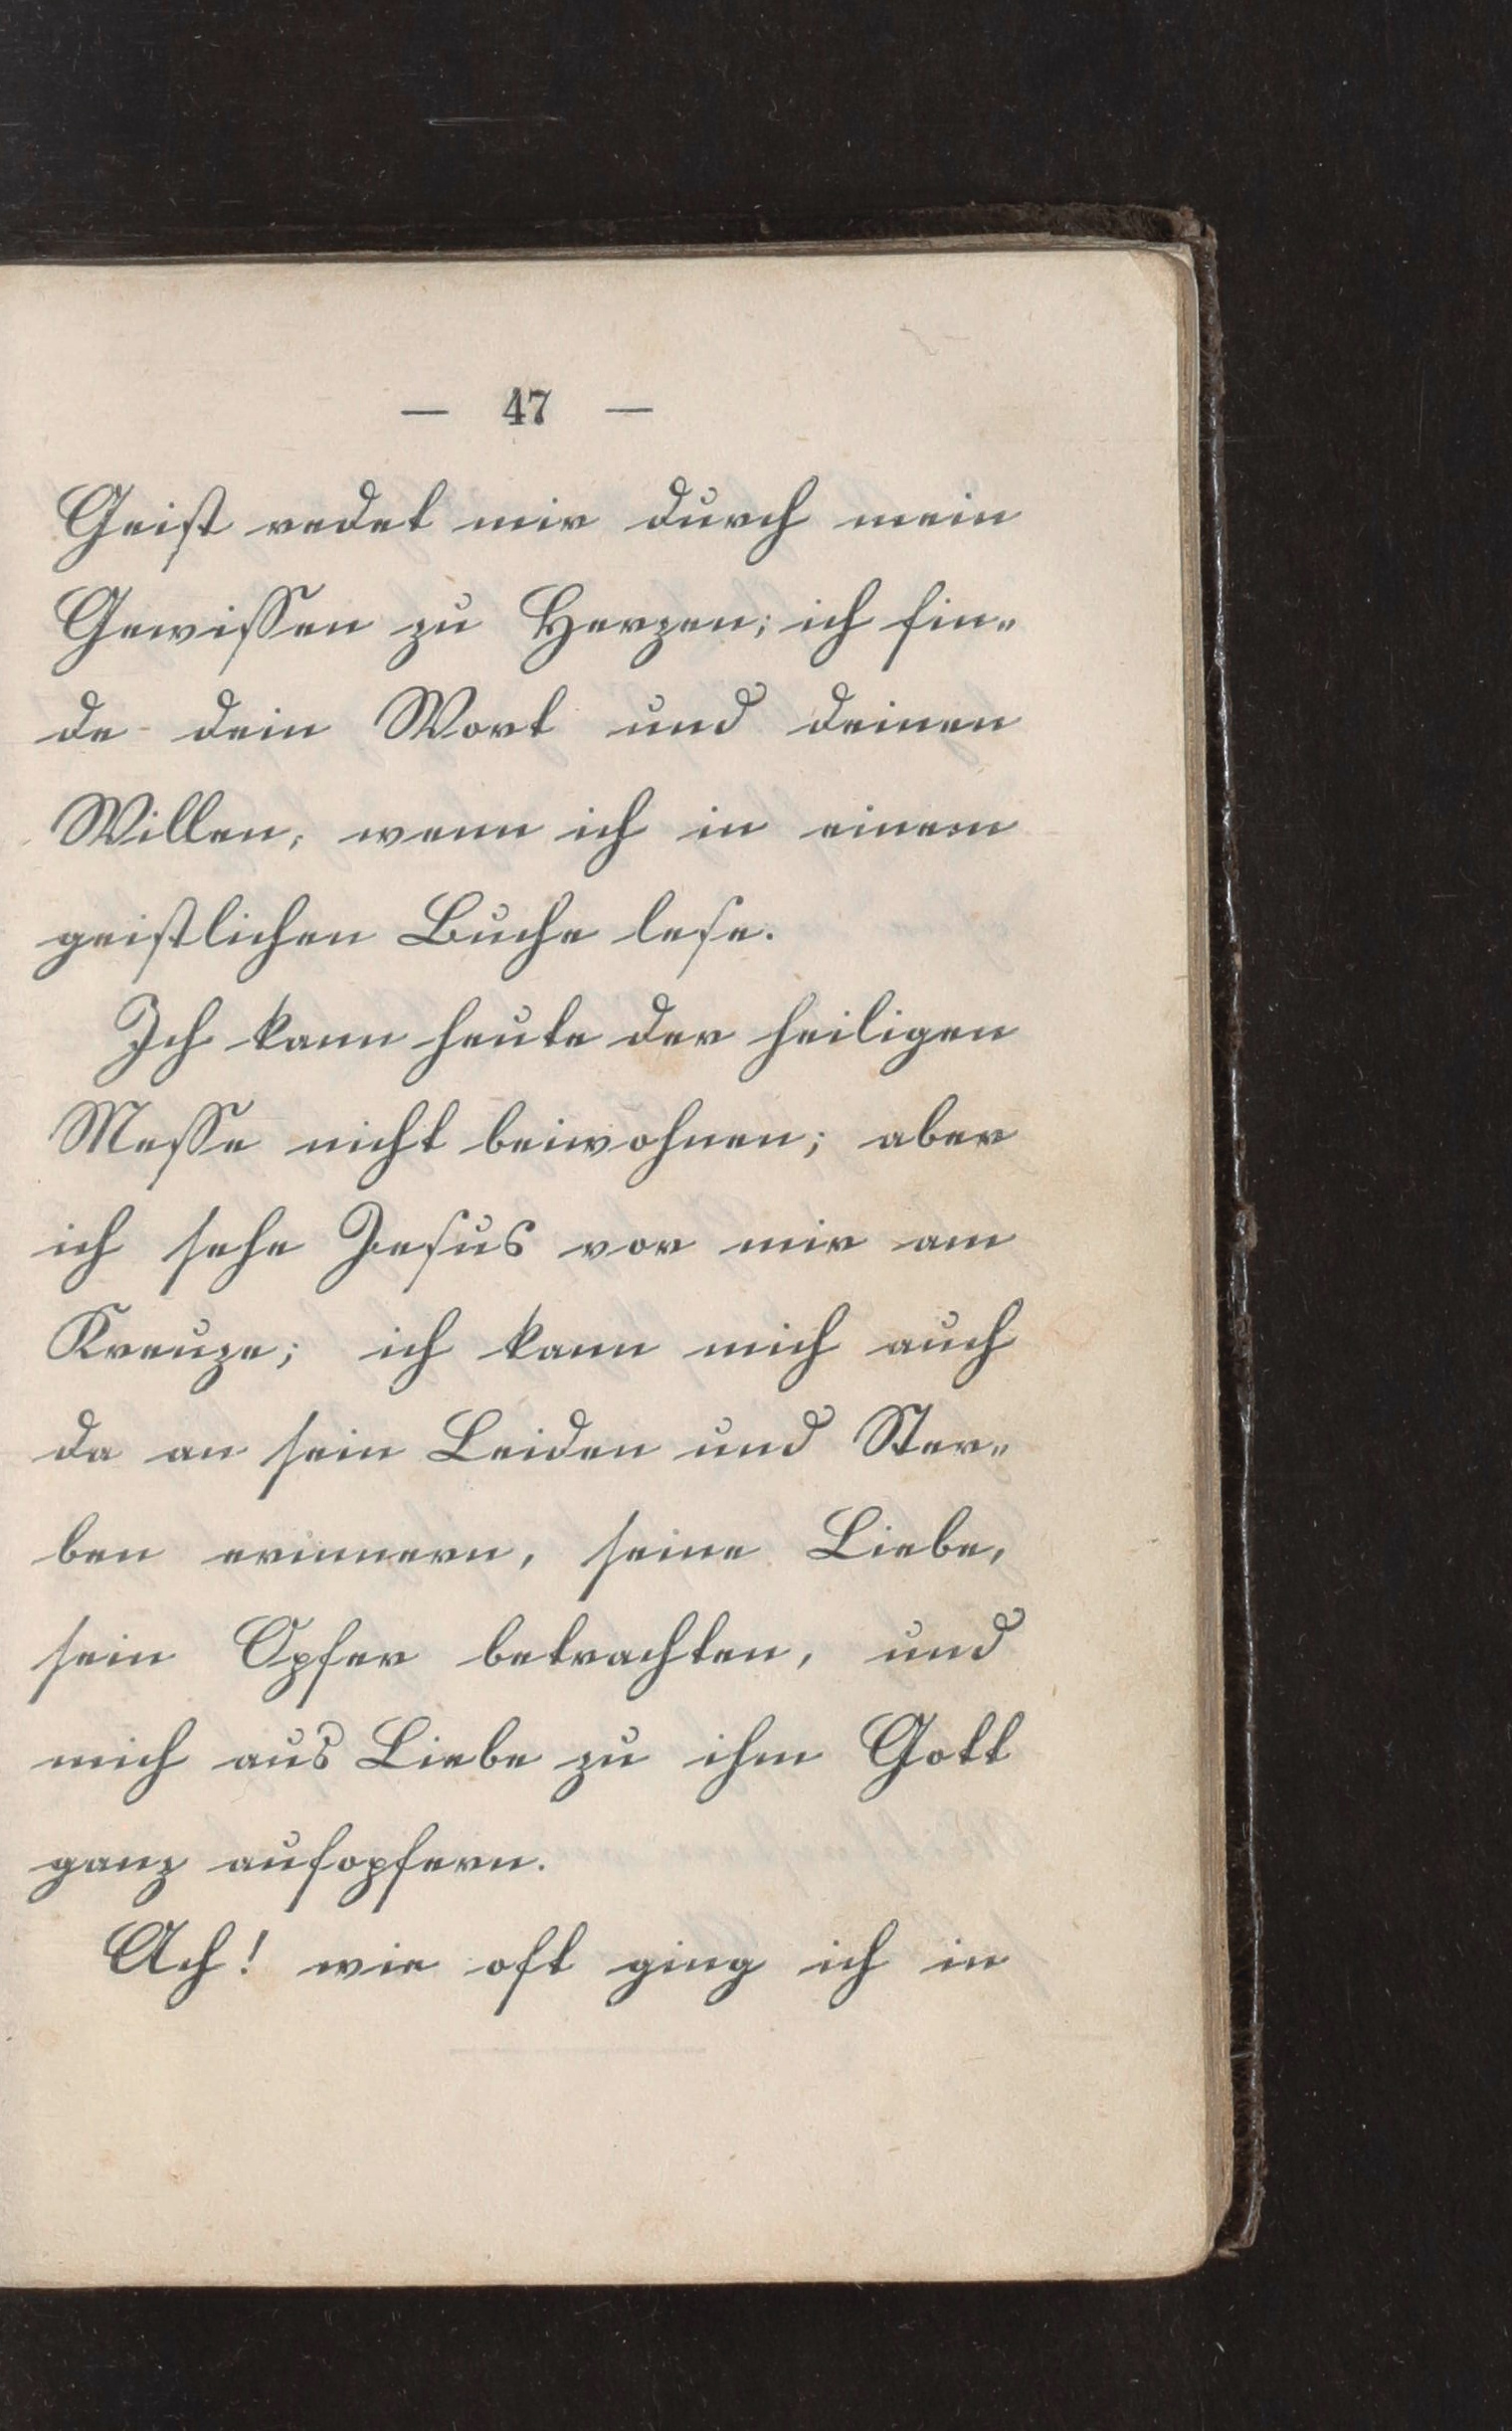 — 47 —
Geist redet mir durch mein
Gewissen zu Herzen; ich fin-
de dein Wort und deinen
Willen, wenn ich in einem
geistlichen Buche lese.
Ich kann heute der heiligen
Messe nicht beiwohnen; aber
ich sehe Jesus vor mir am
Kreuze; ich kann mich auch
da an sein Leiden und Ster-
ben erinnern, seine Liebe,
sein Opfer betrachten, und
mich aus Liebe zu ihm Gott
ganz aufopfern.
Ach! wie oft ging ich in